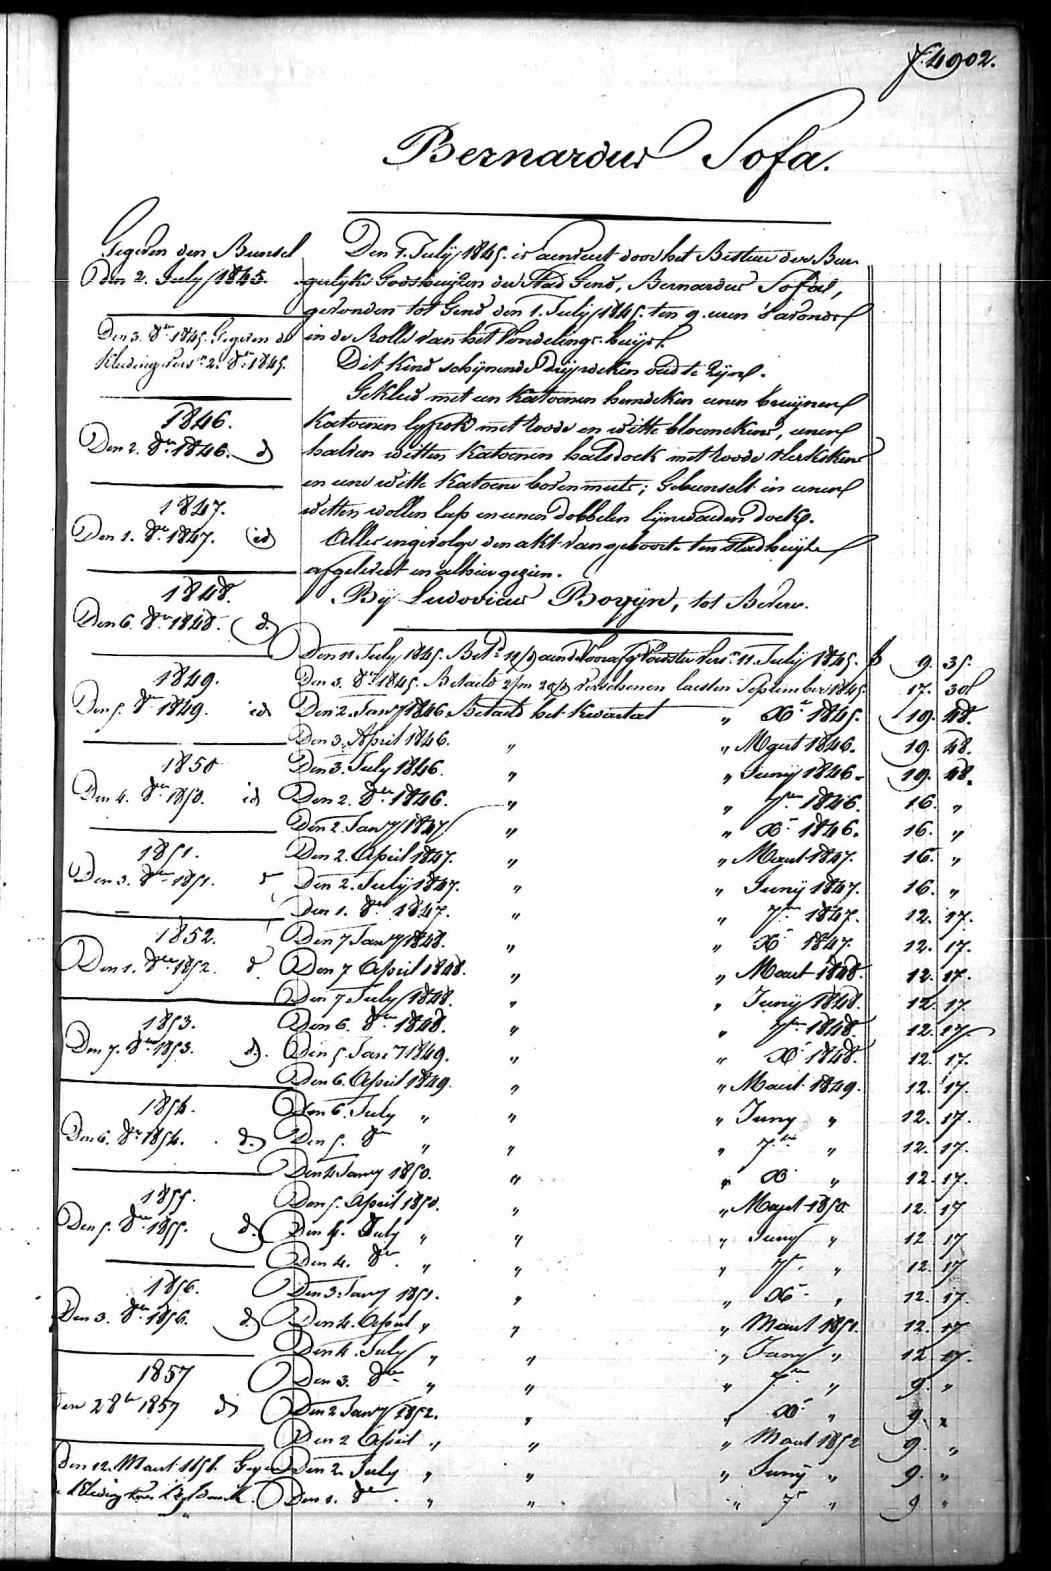 f. 4902.
Bernardus Sofa.
Gegeven den Bunsel
Den 2. July 1845.
Den 3. 8er 1845. Gegeven de
kleeding vers. 2. 8er 1845.
1846.
Den 2. 8er 1846. d
1847.
Den 1. 8er 1847. id
1848.
Den 6. 8er 1848. d.
1849.
Den 5. 8er 1849. id
1850
Den 4. 8er 1850. id
1851.
Den 3. 8er 1851.
1852.
Den 1. 8er 1852. d.
1853.
Den 7. 8er 1853. d.
1854.
Den 6. 8er 1854. d.
1855.
Den 5. 8er 1855. d.
1856.
Den 3. 8er 1856. d.
1857
Den 2 8er 1857 d
Den 12. Maart
Den 1. July 1845. is aenveert door het Bestuer der Bur-
gerlyke Godshuyzen der Stad Gend, Bernardus Sofa,
gevonden tot Gend den 1. July 1845. ten 9. uren s'avonds
in de Rolle van het Vondelings-huys.
Dit kind schynende dry weken oud te zyn.
Gekleed met een katoenen hemdeken eenen bruynen
katoenen lyfrok met roode en witte bloemekens, eenen
halven witten katoenen halsdoek met roode vlerkskens
en eene witte katoene bovenmuts; Gebunselt in eenen
witten wollen lap en eenen dobbelen lynwaeden doek.
Alles ingevolge den akt van geboorte ten stadhuyze
afgeleverd en alhier gezien.
By Ludovicus Bogyn, tot Beveren.
Den 11 July 1845. Bet. 11. July 1845. f 9. 35.
Den 3. 8er 1845. Betaeld verschenen laesten September 1845. 17. 30
Den 2 Jany 1846 Betaeld het kwartael „ Xr 1845. 19. 48.
Den 3. April 1846. „ „ Maert 1846. 19. 48.
Den 3. July 1846. „ „ Juny 1846. 19. 48.
Den 2. 8er 1846. „ „ 7er 1846. 16. „
Den 2 Jany 1847. „ „ Xr 1846. 16. „
Den 2. April 1847. „ „ Maert 1847. 16. „
Den 2. July 1847. „ „ Juny 1847. 16. „
Den 1. 8er 1847. „ „ 7er 1847. 12. 17.
Den 7 Jany 1848. „ „ Xr 1847. 12. 17.
Den 7 April 1848. „ „ Maert 1848. 12. 17.
Den 7 July 1848. „ „ Juny 1848. 12. 17
Den 6. 8er 1848. „ „ 7er 1848. 12. 17
Den 5 Jany 1849. „ „ Xr 1848. 12. 17.
Den 6. April 1849. „ „ Maert 1849. 12. 17.
Den 6. July „ „ „ Juny „ 12. 17.
Den 5. 8er „ „ „ 7er „ 12. 17.
Den 4 Jany 1850. „ „ Xr „ 12. 17
Den 5. April 1850. „ „ Maert 1850 12. 17
Den 4. July „ „ „ Juny „ 12 17
Den 4. 8er „ „ „ 7er „ 12. 17
Den 3. Jany 1851. „ „ Xr „ 12. 17.
Den 4. April „ „ „ Maert 1851. 12. 17
Den 4. July „ „ „ Juny „ 12 17.
Den 3. 8er „ „ „ 7er „ 9. „
Den 2 Jany 1852. „ „ Xr „ 9. „
Den 2 April „ „ „ Maert 1852 9. „
Den 2. July „ „ „ Juny „ 9. „
Den 1. 8er „ „ „ 7er „ 9 „